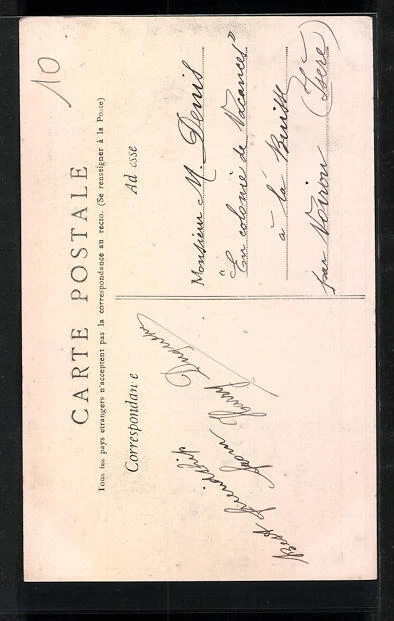 10
CARTE POSTALE
Tous les pays etrangers n'acceptent pas la correspondance au recto. (Se renseigner à la Poste)
Correspondance
Ad esse
Best friendship
from Henry
Monsieur M. Denis
"En colonie de Vacances"
à la Buisse
par Voiron (Isère)